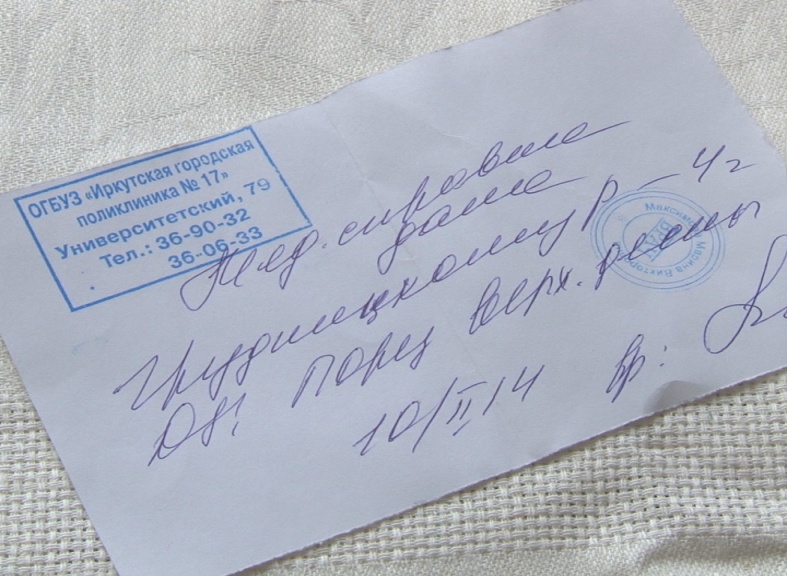 ОГБУЗ «Иркутская городская
поликлиника № 17»
Университетский, 79
Тел.: 36-90-32
36-06-33
Мед. справка
дана
Грудницкому Р – 4 г
DS: Порез верх. десны
10/II 14 Вр:
Максим Марина Виктор
ВРАЧ